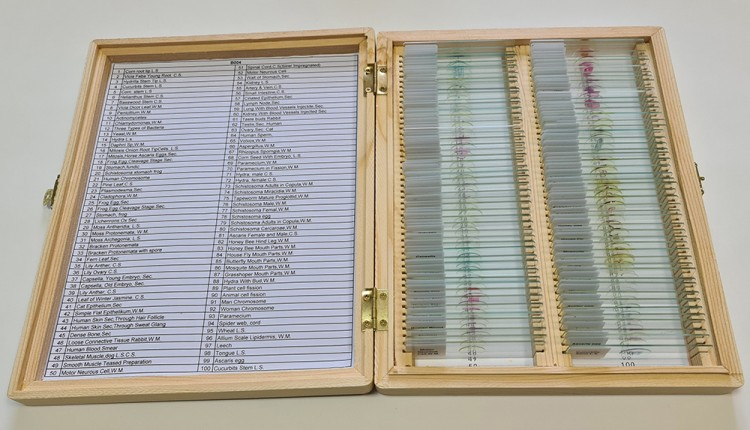 B004
1 Corn root tip L.S
2 Vicia Faba Young Root C.S.
3 Hydrilla Stem Tip L.S
4 Cucurbits Stem L.S
5 Corn stem L.S
6 Helianthus Stem C.S
Basswood Stem C.S
8 Vicia Leaf W.M
9 Penicillium W.M
10 Actinomycetes
11 Chlamydomonas,W.M
12 Three Types of Bacteria
13 Yeast,W.M
14 Hydra L.s
15 Daphni Sp.W.M
16 Mitosis Onion Root Tip L.S
17 Mitosis Horse Ascaris Eggs,Sec
18 Frog Egg Cleavage Stage Sec
19 Stomach fundic
20 Schistosoma stomach frog
21 Human Chromosome
22 Pine Leaf,C.S
23 Plasmodesma,Sec
24 Cladophora,W.M
25 Frog Egg,Sec
26 Frog Egg Cleavage Stage,Sec
27 Stomach, frog
28 Lichenions Os Sec
29 Moss Antheridia, L.S
30 Moss Protonemata, W.M
31 Moss Archegonia, L.S
32 Bracken Protonemata
33 Bracken Protonemata with spore
34 Fern Leaf,Sec
35 Lily Anther, C.S
36 Lily Ovary C.S
37 Capsella, Young Embryo, Sec
38 Capsella, Old Embryo, Sec
39 Lily Anther, C.S
40 Leaf of Winter Jasmine, C.S
41 Cat Epithelium,Sec
42 Simple Flat Epithelikum,W.M
43 Human Skin Sec,Through Hair Follicle
44 Human Skin Sec,Through Sweat Gland
45 Dense Bone,Sec
46 Loose Connective Tissue Rabbit,W.M
47 Human Blood Smear
48 Skeletal Muscle,dog L.S,C.S
49 Smooth Muscle Teased Preparation
50 Motor Neurous Cell,W.M
51 Spinal Cord C.S(Silver Impregnated)
52 Motor Neurous Cell
53 Wall of Stomach,Sec
54 Kidney L.S
55 Artery & Vein C.S
56 Small Intestine,C.S
57 Ciliated Epithelium,Sec
58 Lymph Node,Sec
59 Lung With Blood Vessels Injected Sec
60 Kidney With Blood Vessels Injected Sec
61 Taste buds Rabbit
62 Testis Sec, Human
63 Ovary Sec, Cat
64 Human Sperm
65 Volvox,W.M
66 Aspergillus,W.M
67 Rhizopus W.M
68 Corn Seed With Embryo, L.S
69 Paramecium,W.M
70 Paramecium in Fission,W.M
71 Hydra, male C.S
72 Hydra, female C.S
73 Schistosoma Adults in Copula,W.M
74 Schistosoma Miracidia,W.M
75 Tapeworm Mature Proglottid,W.M
76 Schistosoma Male,W.M
77 Schistosoma Femal,W.M
78 Schistosoma egg
79 Schistosoma Adults in Copula,W.M
80 Schistosoma Cercariae,W.M
81 Ascaris Female and Male,C.S
82 Honey Bee Hind Leg,W.M
83 Honey Bee Mouth Parts,W.M
84 House Fly Mouth Parts,W.M
85 Butterfly Mouth Parts,W.M
86 Mosquitoe Mouth Parts,W.M
87 Grasshoper Mouth Parts,W.M
88 Hydra With Bud W.M
89 Plant cell fission
90 Animal cell fission
91 Man Chromosome
92 Woman Chromosome
93 Paramecium
94 Spider web, cord
95 Wheat L.S.
96 Allium Scale Lipidermis, W.M
97 Leech
98 Tongue L.S
99 Ascaris egg
100 Cucurbits Stem L.S
100